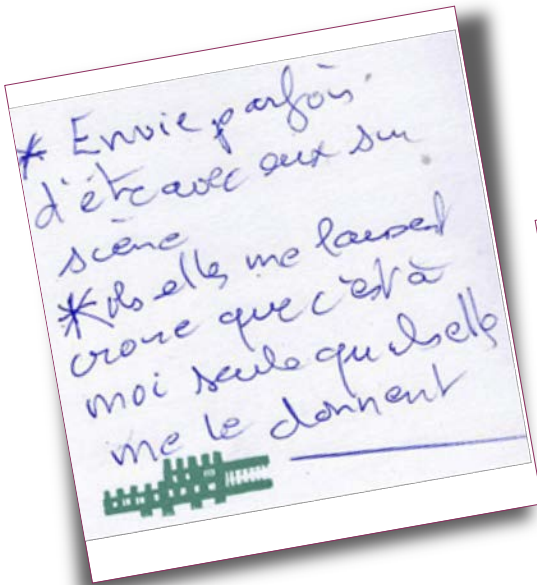 * Envie parfois
d'être avec eux sur
scène
* ils elles me laissent
croire que c'est à
moi seule qu'ils elles
me le donnent